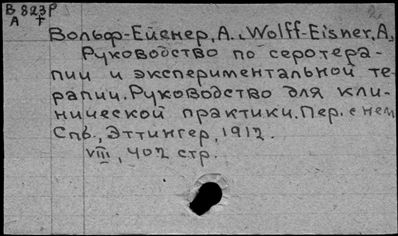 В 823Р
А т
Вольф-Ейснер, А. Wolff-Eisner, A.
Руководство по серотера-
пии и экспериментальной те-
рапии. Руководство для кли-
нической практики. Пер. с нем
Спб., Эттингер, 1912.
VIII, 402 стр.